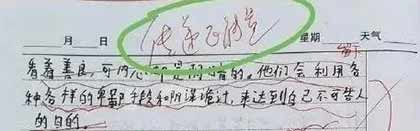 传递正能量
月 日 星期 天气
看着善良,可内心却是阴暗的。他们会利用各
种各样的卑鄙手段和阴谋诡计,来达到自己不可告人
的目的。